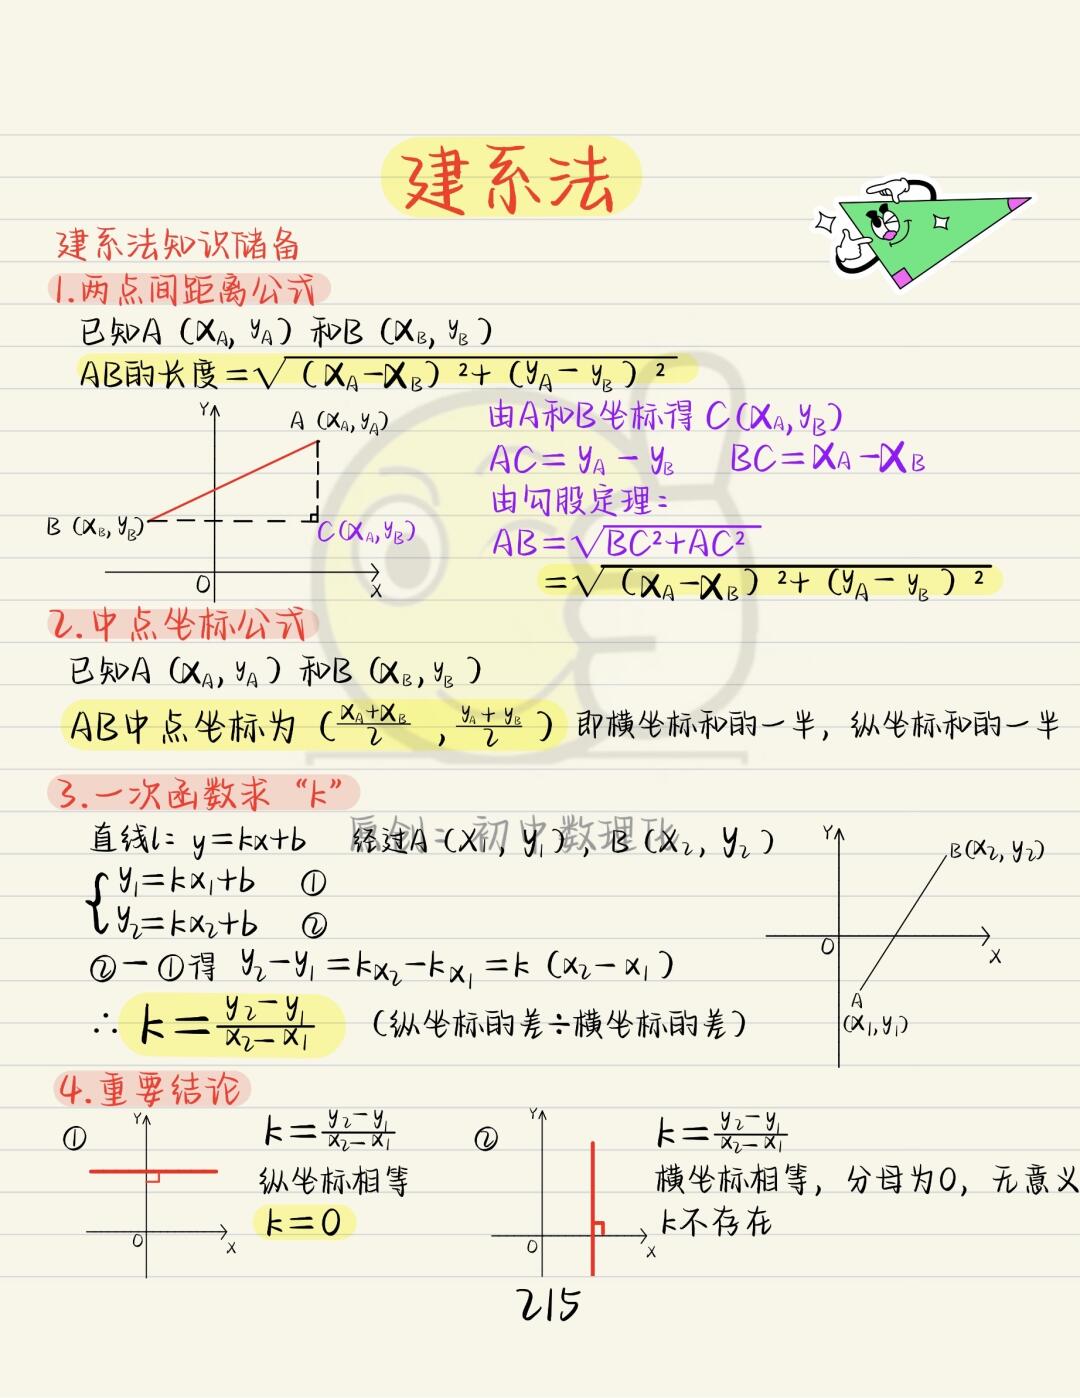 建系法
建系法知识储备
1.两点间距离公式
已知A（X_A, y_A）和B（X_B, y_B）
AB的长度=√（X_A-X_B）²+（y_A-y_B）²
Y
A（X_A, y_A）
B（X_B, y_B）
C（X_A, y_B）
O
X
由A和B坐标得 C（X_A, y_B）
AC=y_A-y_B BC=X_A-X_B
由勾股定理：
AB=√BC²+AC²
=√（X_A-X_B）²+（y_A-y_B）²
2.中点坐标公式
已知A（X_A, y_A）和B（X_B, y_B）
AB中点坐标为（(X_A+X_B)/2, (y_A+y_B)/2）即横坐标和的一半，纵坐标和的一半
3.一次函数求“k”
原创：初中数理化
直线l：y=kx+b 经过A（X₁, y₁），B（X₂, y₂）
{y₁=kx₁+b ①
y₂=kx₂+b ②
②-①得 y₂-y₁=kx₂-kx₁=k（x₂-x₁）
∴ k=(y₂-y₁)/(x₂-x₁) （纵坐标的差÷横坐标的差）
Y
B（X₂, y₂）
O
X
A
（X₁, y₁）
4.重要结论
①
Y
O
X
k=(y₂-y₁)/(x₂-x₁)
纵坐标相等
k=0
②
Y
O
X
k=(y₂-y₁)/(x₂-x₁)
横坐标相等，分母为0，无意义
k不存在
215